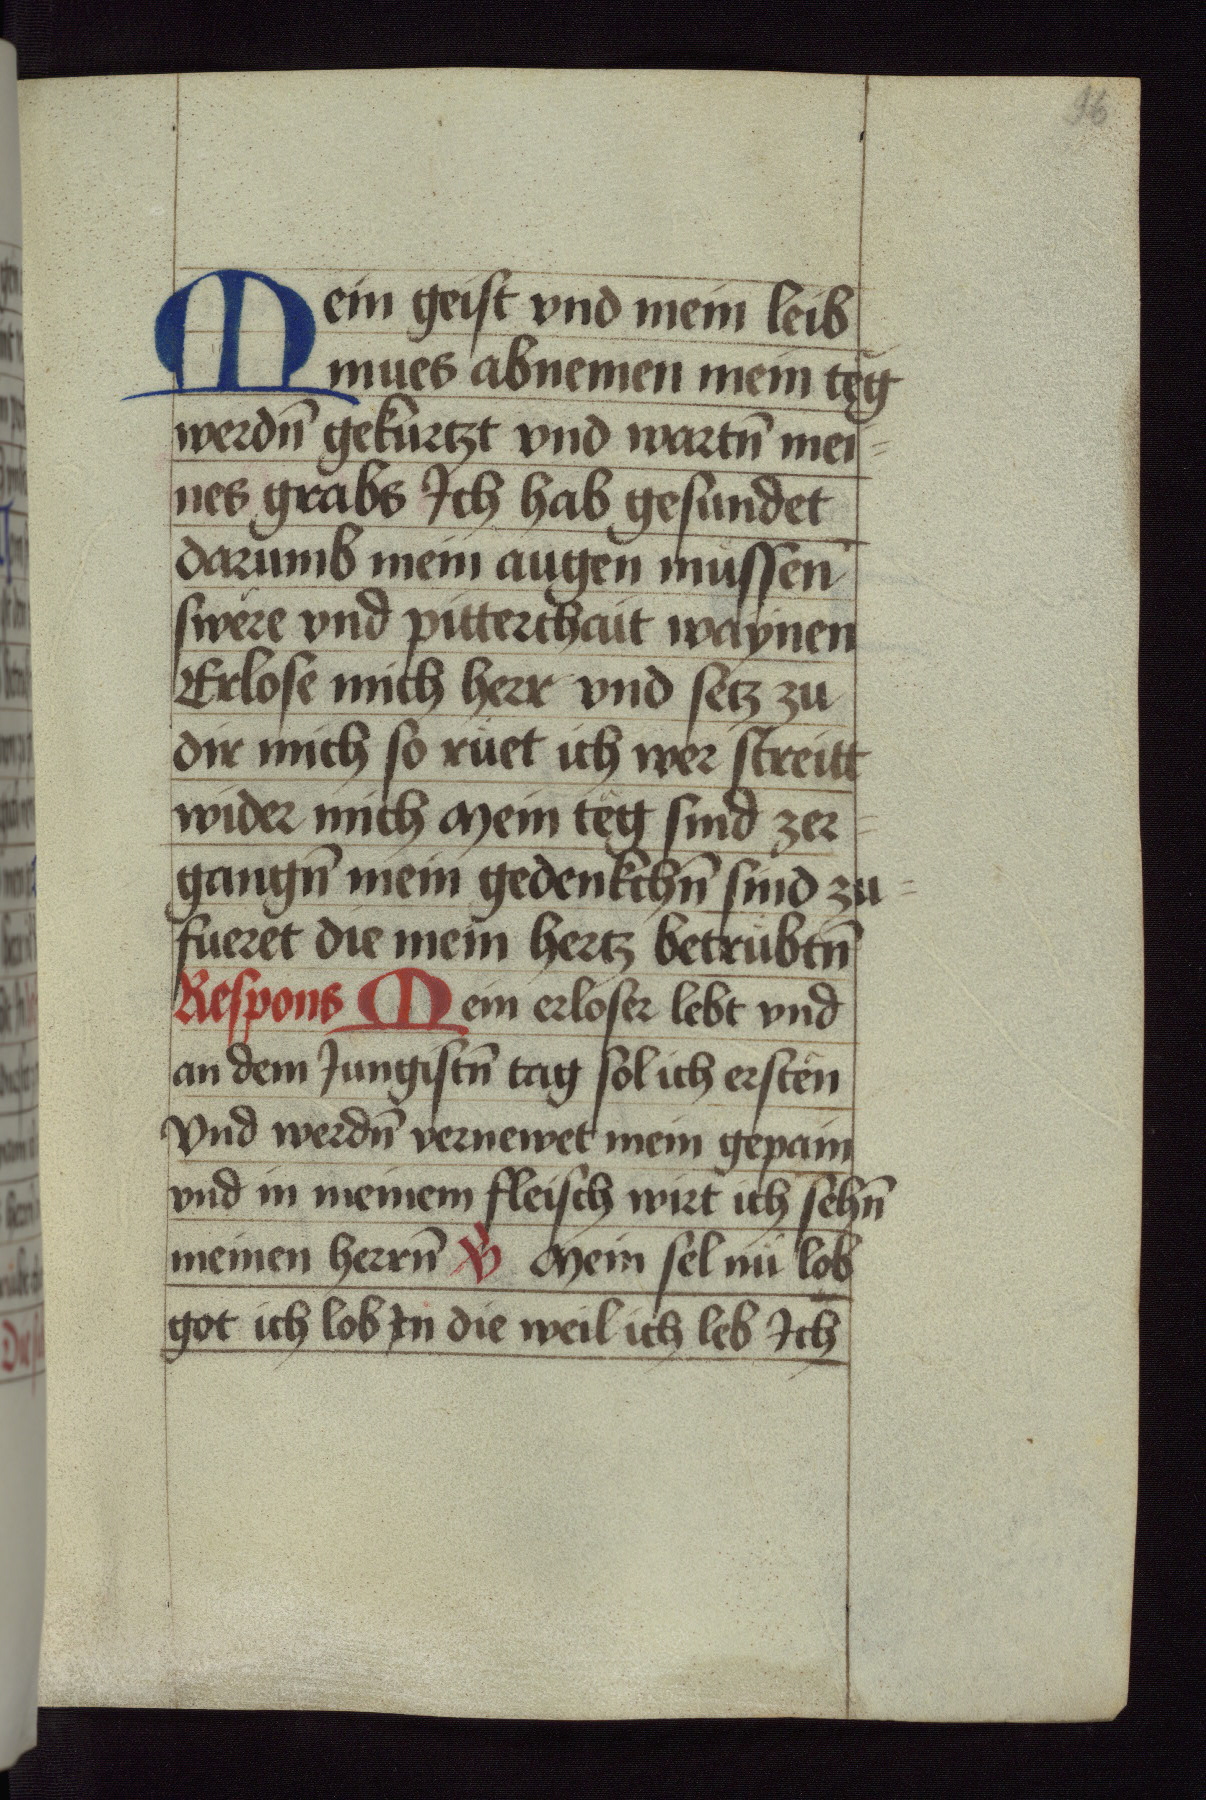 96
Mein geist vnd mein leib
mues abnemen mein teg
werdn̄ gekürtzt vnd wartn̄ mei=
nes grabs Ich hab gesundet
darumb mein augen müssen
swere vnd pitterchait waynen
Erlose mich herr vnd setz zu
dir mich so rüet ich wer streitt
wider mich Mein teg sind zer=
gangn̄ mein gedenkchn̄ sind zu=
fueret die mein hertz betrübtn̄
Respons Mein erloser lebt vnd
an dem Jungistn̄ tag sol ich ersten
Vnd werdn̄ vernewet mein gepain
vnd in meinem fleisch wirt ich sehn̄
meinen herrn̄ ℣ Mein sel nü lob
got ich lob In die weil ich leb Ich